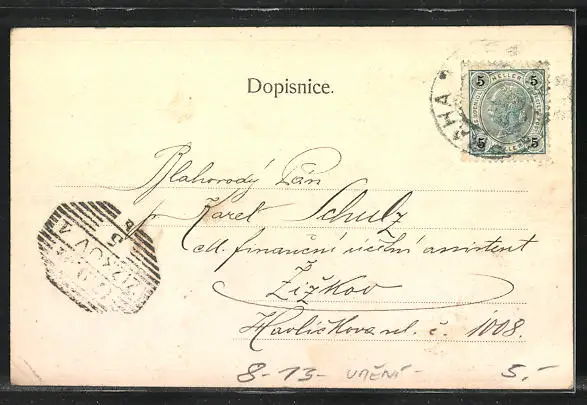 Dopisnice.
5 HELLER 5
5 HELLER 5
AHA
Blahorodý Pán
p. Karel Schulz
c.k. finanční účetní assistent
Žižkov
Havlíčkova ul. č. 1008.
ŽIŽKOV 1
8-13- UMĚNÍ- 5.-